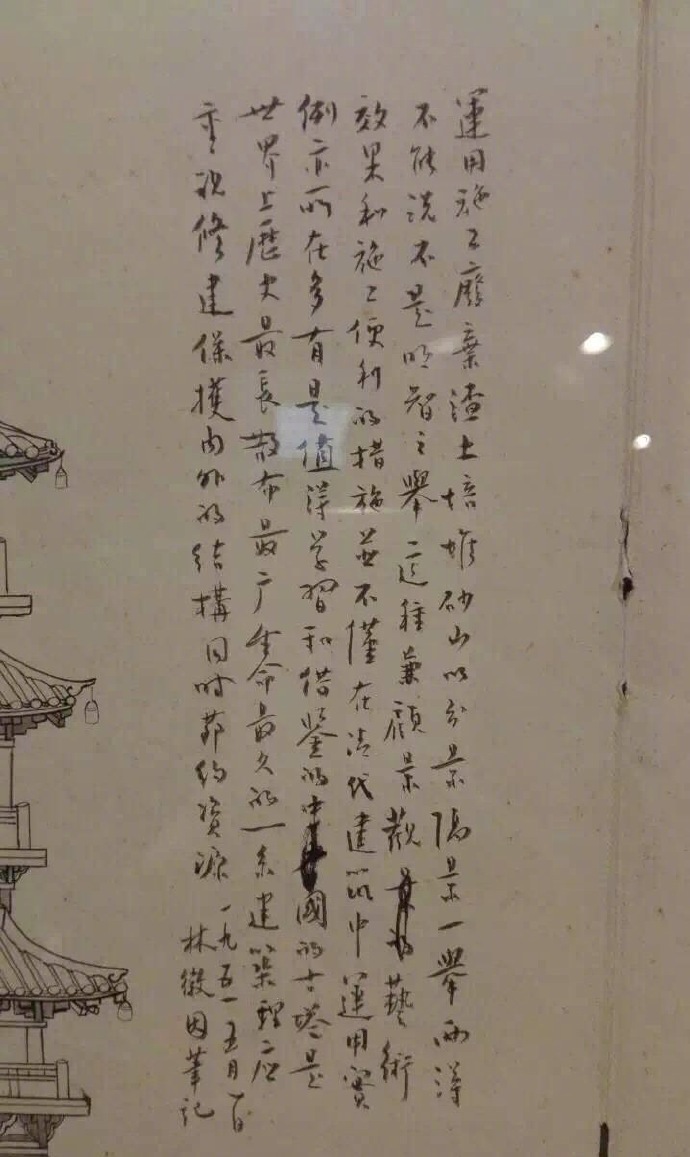 運用施工廢棄渣土培堆砂山以分景隔景一舉兩得
不能説不是明智之舉這種兼顧景觀藝術
效果和施工便利的措施並不僅在清代建筑中運用實
例亦所在多有是值得学習和借鉴的中國的古塔是
世界上歷史最長散布最广生命最久的一系建築理应
重視修建保護内外的结構同时節约資源
一九五一五月
林徽因筆記